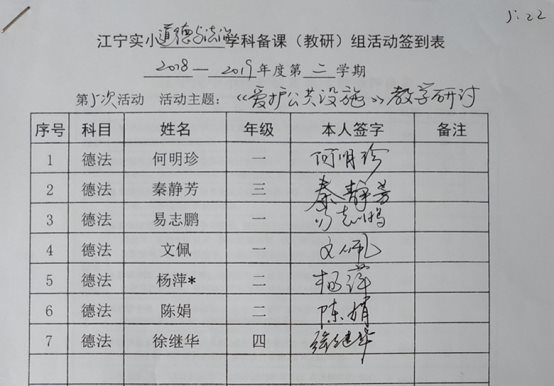 5.22
江宁实小道德与法治学科备课（教研）组活动签到表
2018—2019年度第二学期
第5次活动 活动主题：《爱护公共设施》教学研讨
序号 科目 姓名 年级 本人签字 备注
1 德法 何明珍 一 何明珍
2 德法 秦静芳 三 秦静芳
3 德法 易志鹏 一 易志鹏
4 德法 文佩 一 文佩
5 德法 杨萍* 二 杨萍
6 德法 陈娟 二 陈娟
7 德法 徐继华 四 徐继华